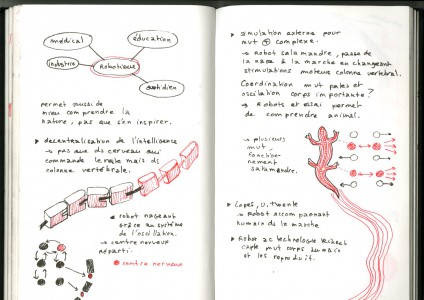 médical
éducation
industrie
Robotique
quotidien
permet aussi de
mieux comprendre la
nature, pas que s'en inspirer.
décentralisation de l'intelligence
→ pas que du cerveau qui
commande le reste mais ds
colonne vertébrale.
→ robot nageant
grâce au système
de l'oscillation.
→ centre nerveux
réparti.
centre nerveux
simulation externe pour
mvt + complexe.
→ Robot salamandre, passe de
la nage à la marche en changeant
stimulations moteur colonne vertébral.
Coordination mvt pates et
oscilation corps importante?
→ Robots et essai permet
de comprendre animal.
→ plusieurs
mvt,
fonction-
nement
salamandre.
Lopes, U. twente
→ Robot accompagnant
humain ds la marche
Robot ac technologie
capte mvt corps humain
et les reproduit.